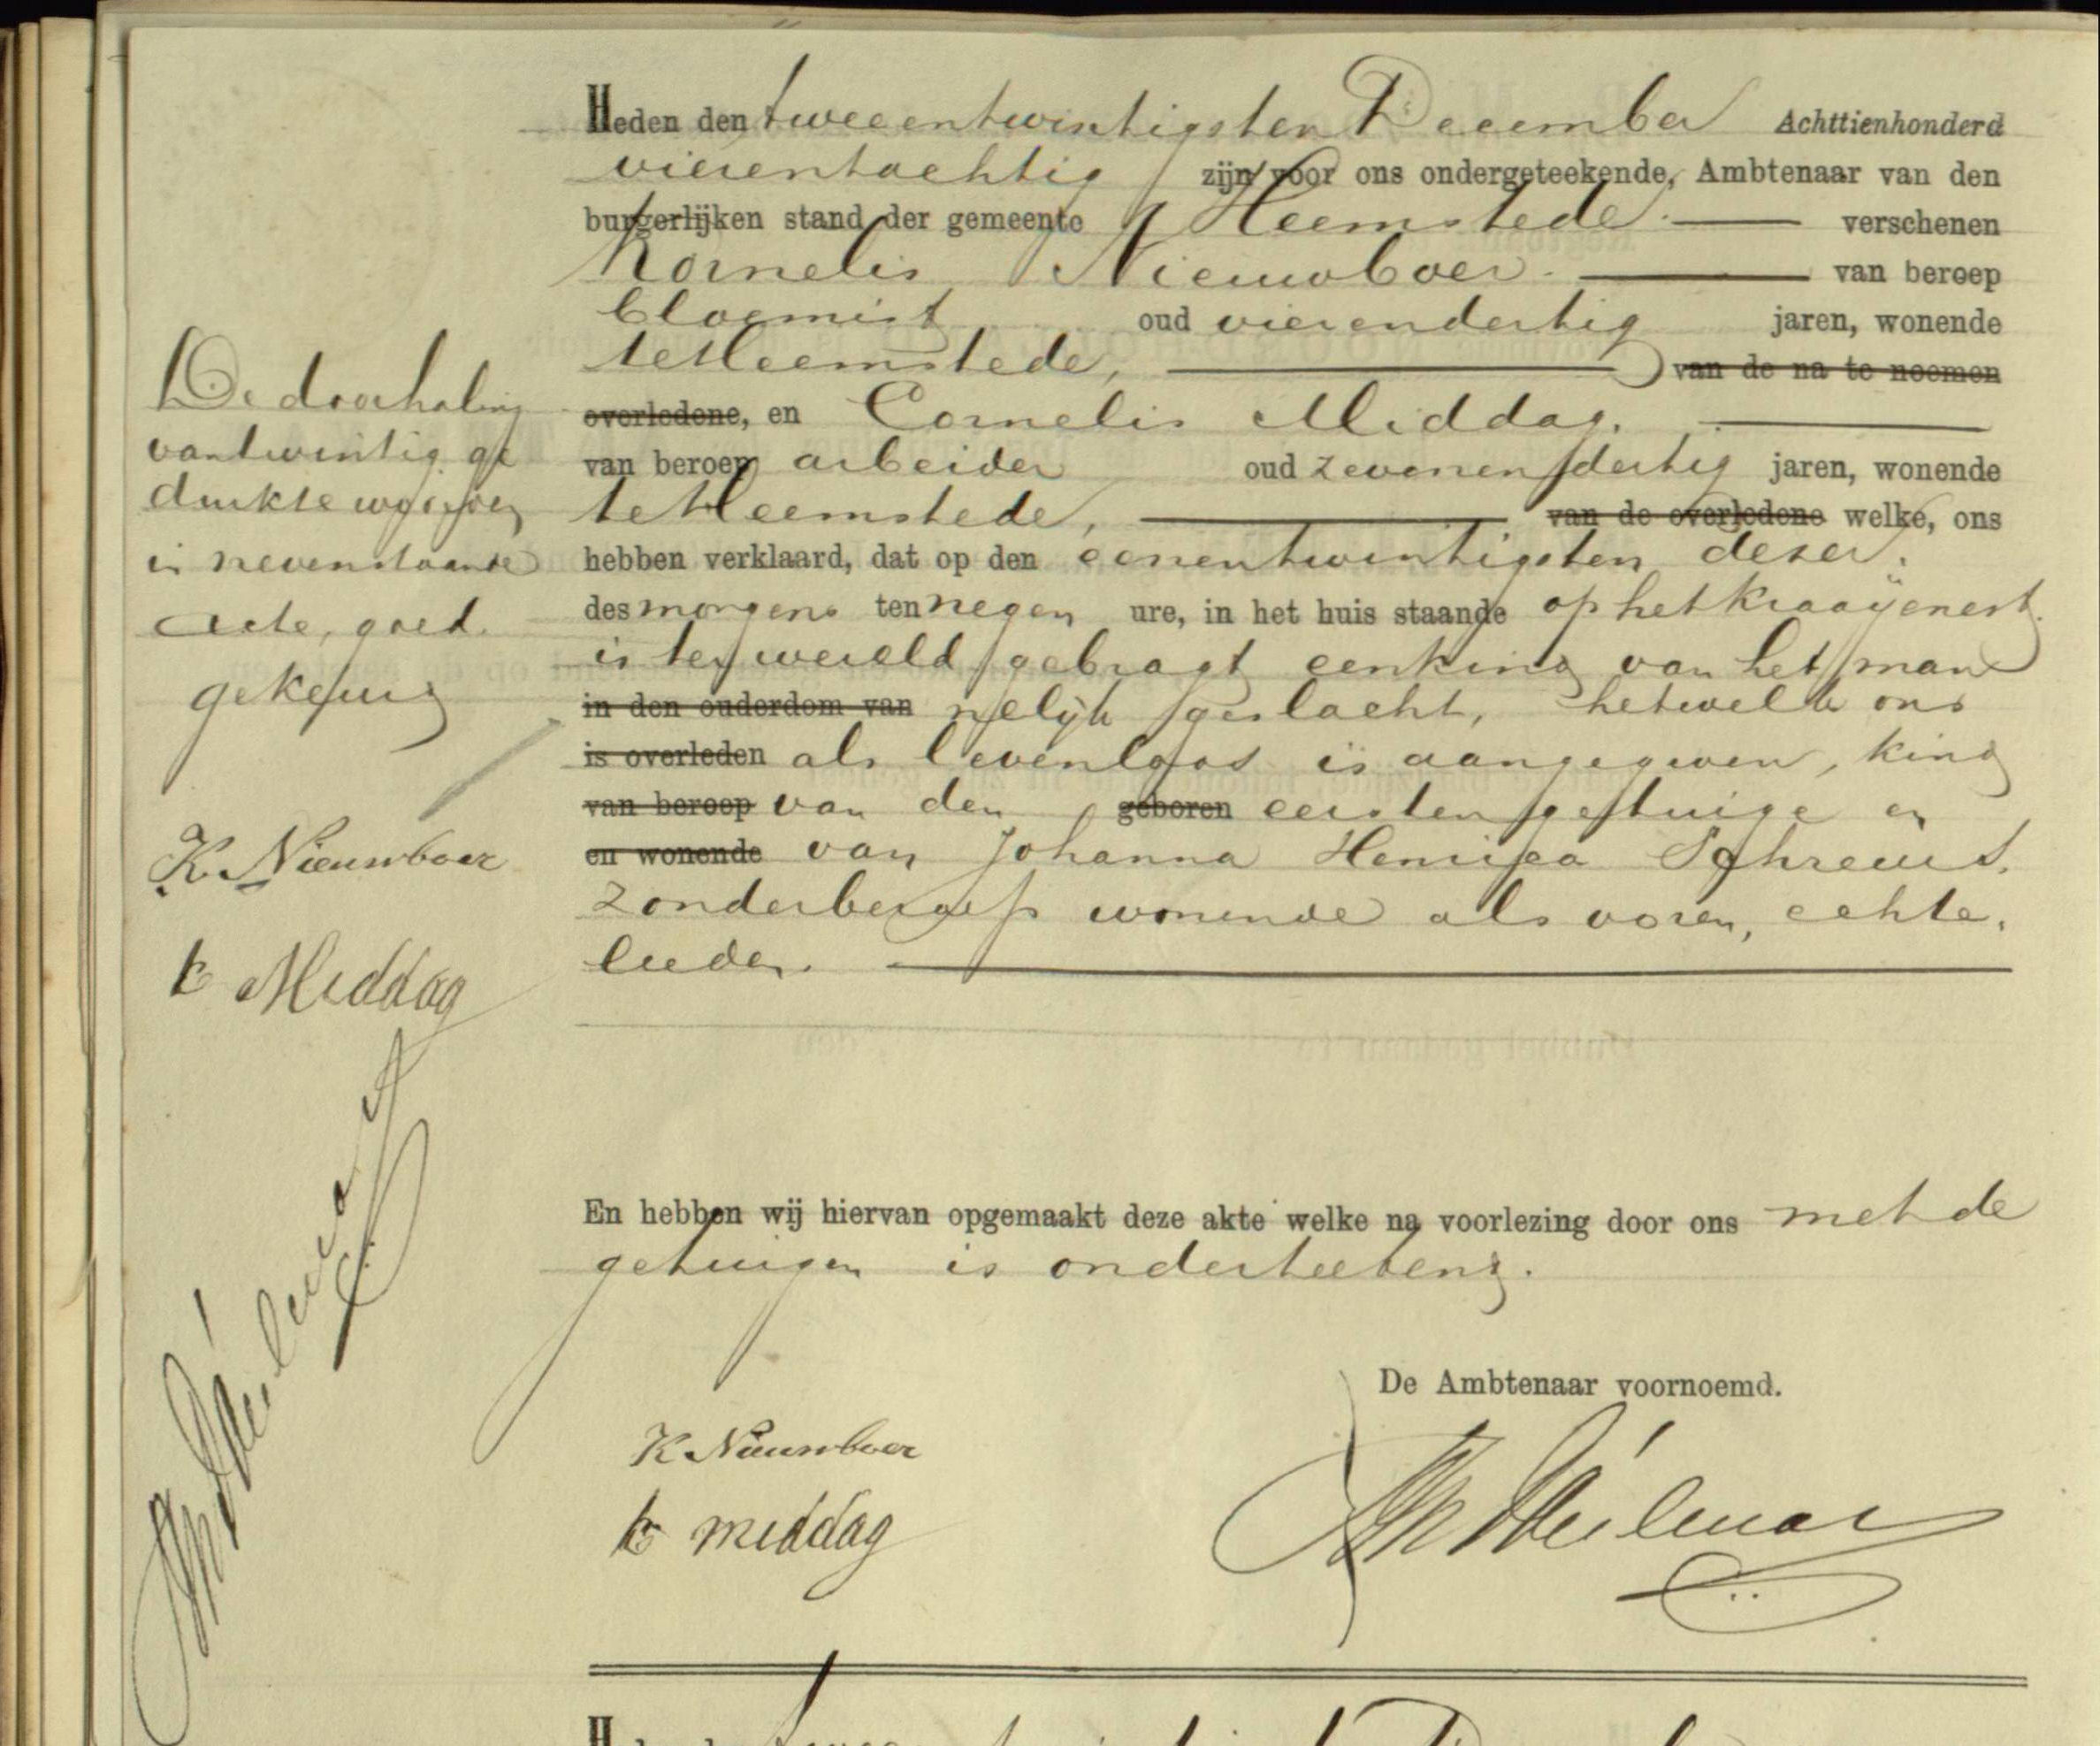 Heden den tweeentwintigsten December Achttienhonderd
vierentachtig zijn voor ons ondergeteekende, Ambtenaar van den
burgerlijken stand der gemeente Heemstede verschenen
Kornelis Nieuwboer van beroep
bloemist oud vierendertig jaren, wonende
te Heemstede, van de na te noemen
overledene, en Cornelis Middag.
van beroep arbeider oud zevenendertig jaren, wonende
te Heemstede, van de overledene welke, ons
hebben verklaard, dat op den eenentwintigsten dezer,
des morgens ten negen ure, in het huis staande op het Kraaÿenest.
is ter wereld gebragt een kind van het man
in den ouderdom van nelijk geslacht, hetwelk ons
is overleden als levenloos is aangegeven, kind
van beroep van den geboren eersten getuige en
en wonende van Johanna Henrica Schreurs.
zonder beroep wonende als voren, echte,
lieden.
De doorhaling
van twintig ge
drukte woorden
in nevenstaande
acte, goed.
gekeurd
K. Nieuwboer
C Middag
En hebben wij hiervan opgemaakt deze akte welke na voorlezing door ons met de
getuigen is onderteekend.
De Ambtenaar voornoemd.
K Nieuwboer
C middag